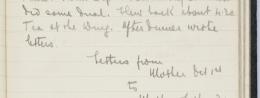 did some dual. Flew back about 4.20
Tea at the Wing. After dinner wrote
letters.
Letters from
Mother Oct 1st
to